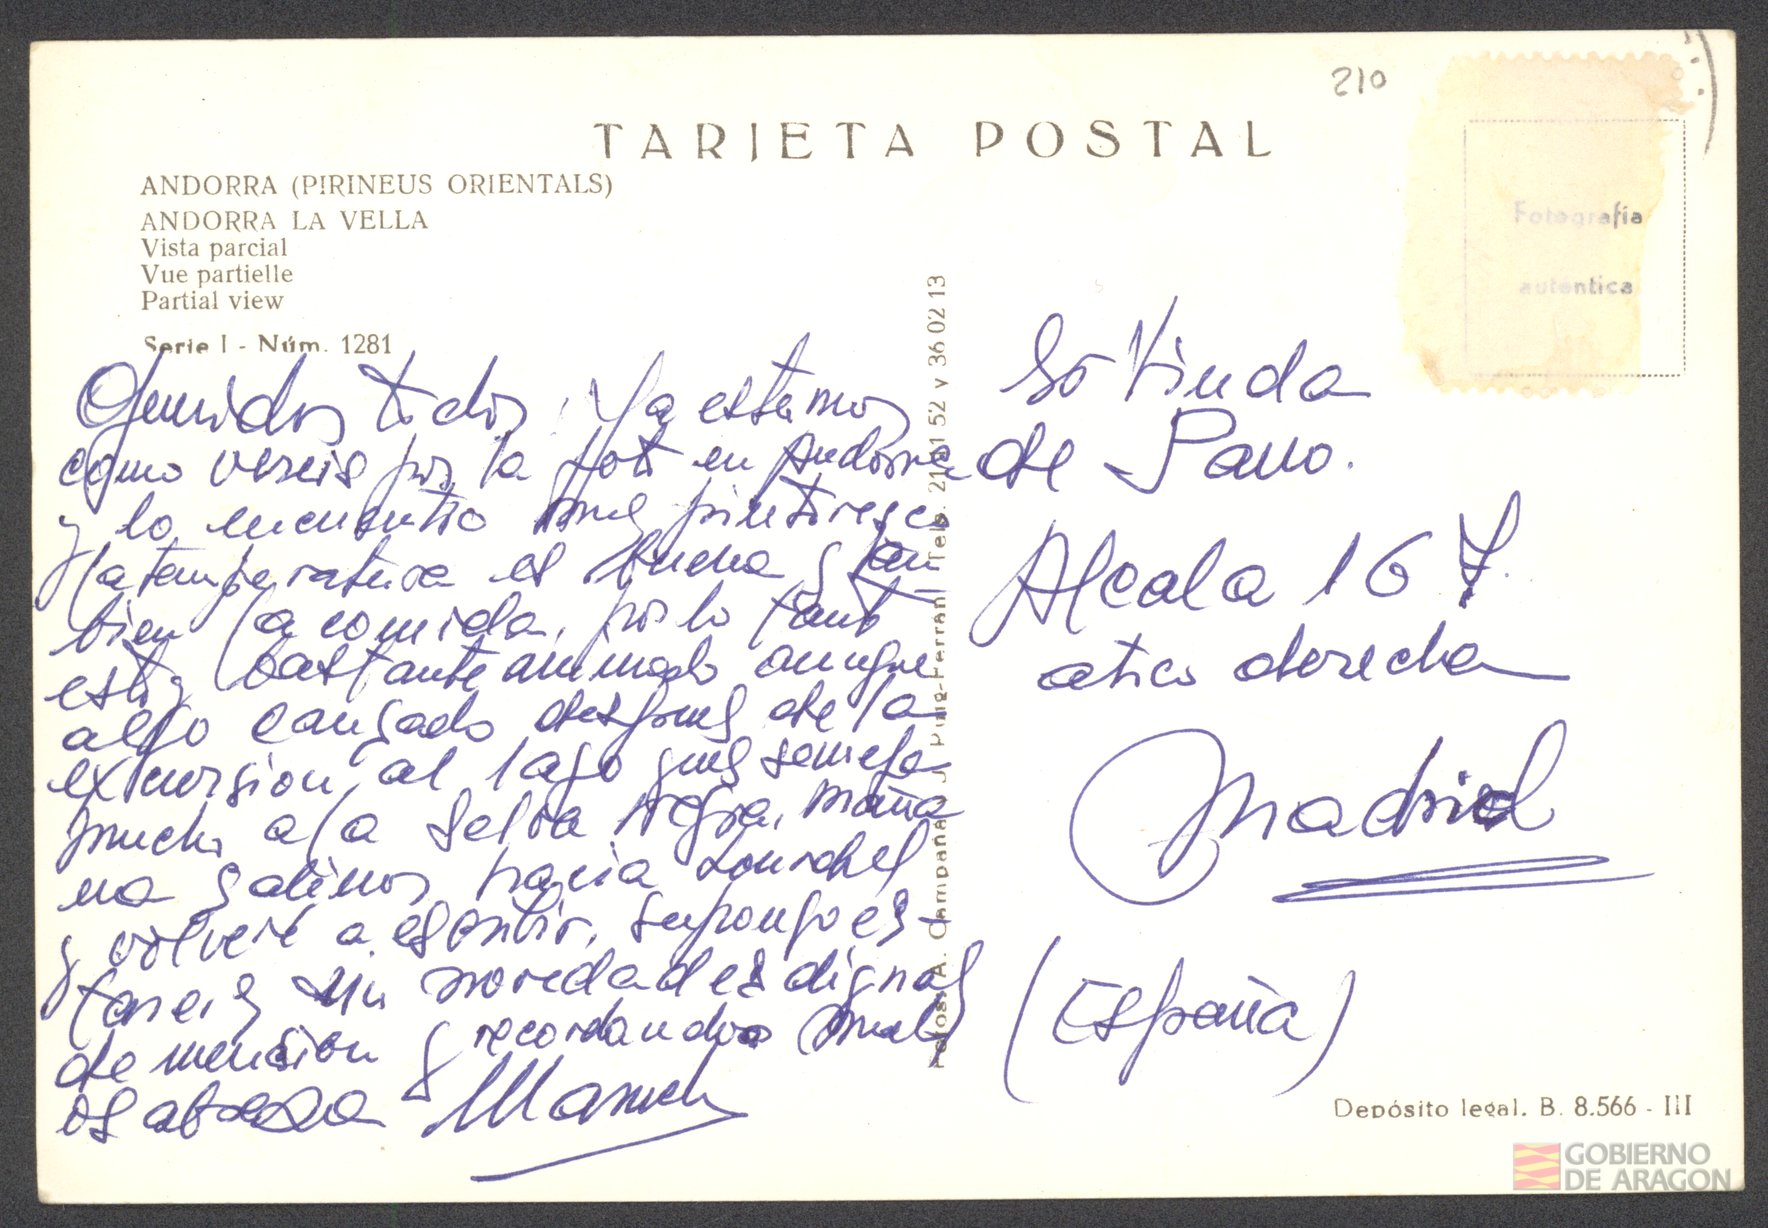 210
TARJETA POSTAL
ANDORRA (PIRINEUS ORIENTALS)
ANDORRA LA VELLA
Vista parcial
Vue partielle
Partial view
Serie I - Núm. 1281
Fotografia
autentica
Queridos todos: Ya estamos
como vereis por la foto en Andorra
y lo encuentro muy pintoresco
la temperatura es buena y tan
bien la comida, por lo tanto
estoy bastante animado aunque
algo cansado despues de la
excursion al lago que semeja
mucho a la Selva Negra, maña
na salimos hacia Lourdes
y volveré a escribir, supongo es-
tareis sin novedades dignas
de mención y recordandoos
os abraza Manuel
Fotos: A. Campañá y J. Puig-Ferrán Tels. 21 81 52 y 36 02 13
Sr Viuda
de Pano.
Alcala 167.
atico derecha
Madrid
(España)
Depósito legal. B. 8.566 - III
GOBIERNO
DE ARAGON